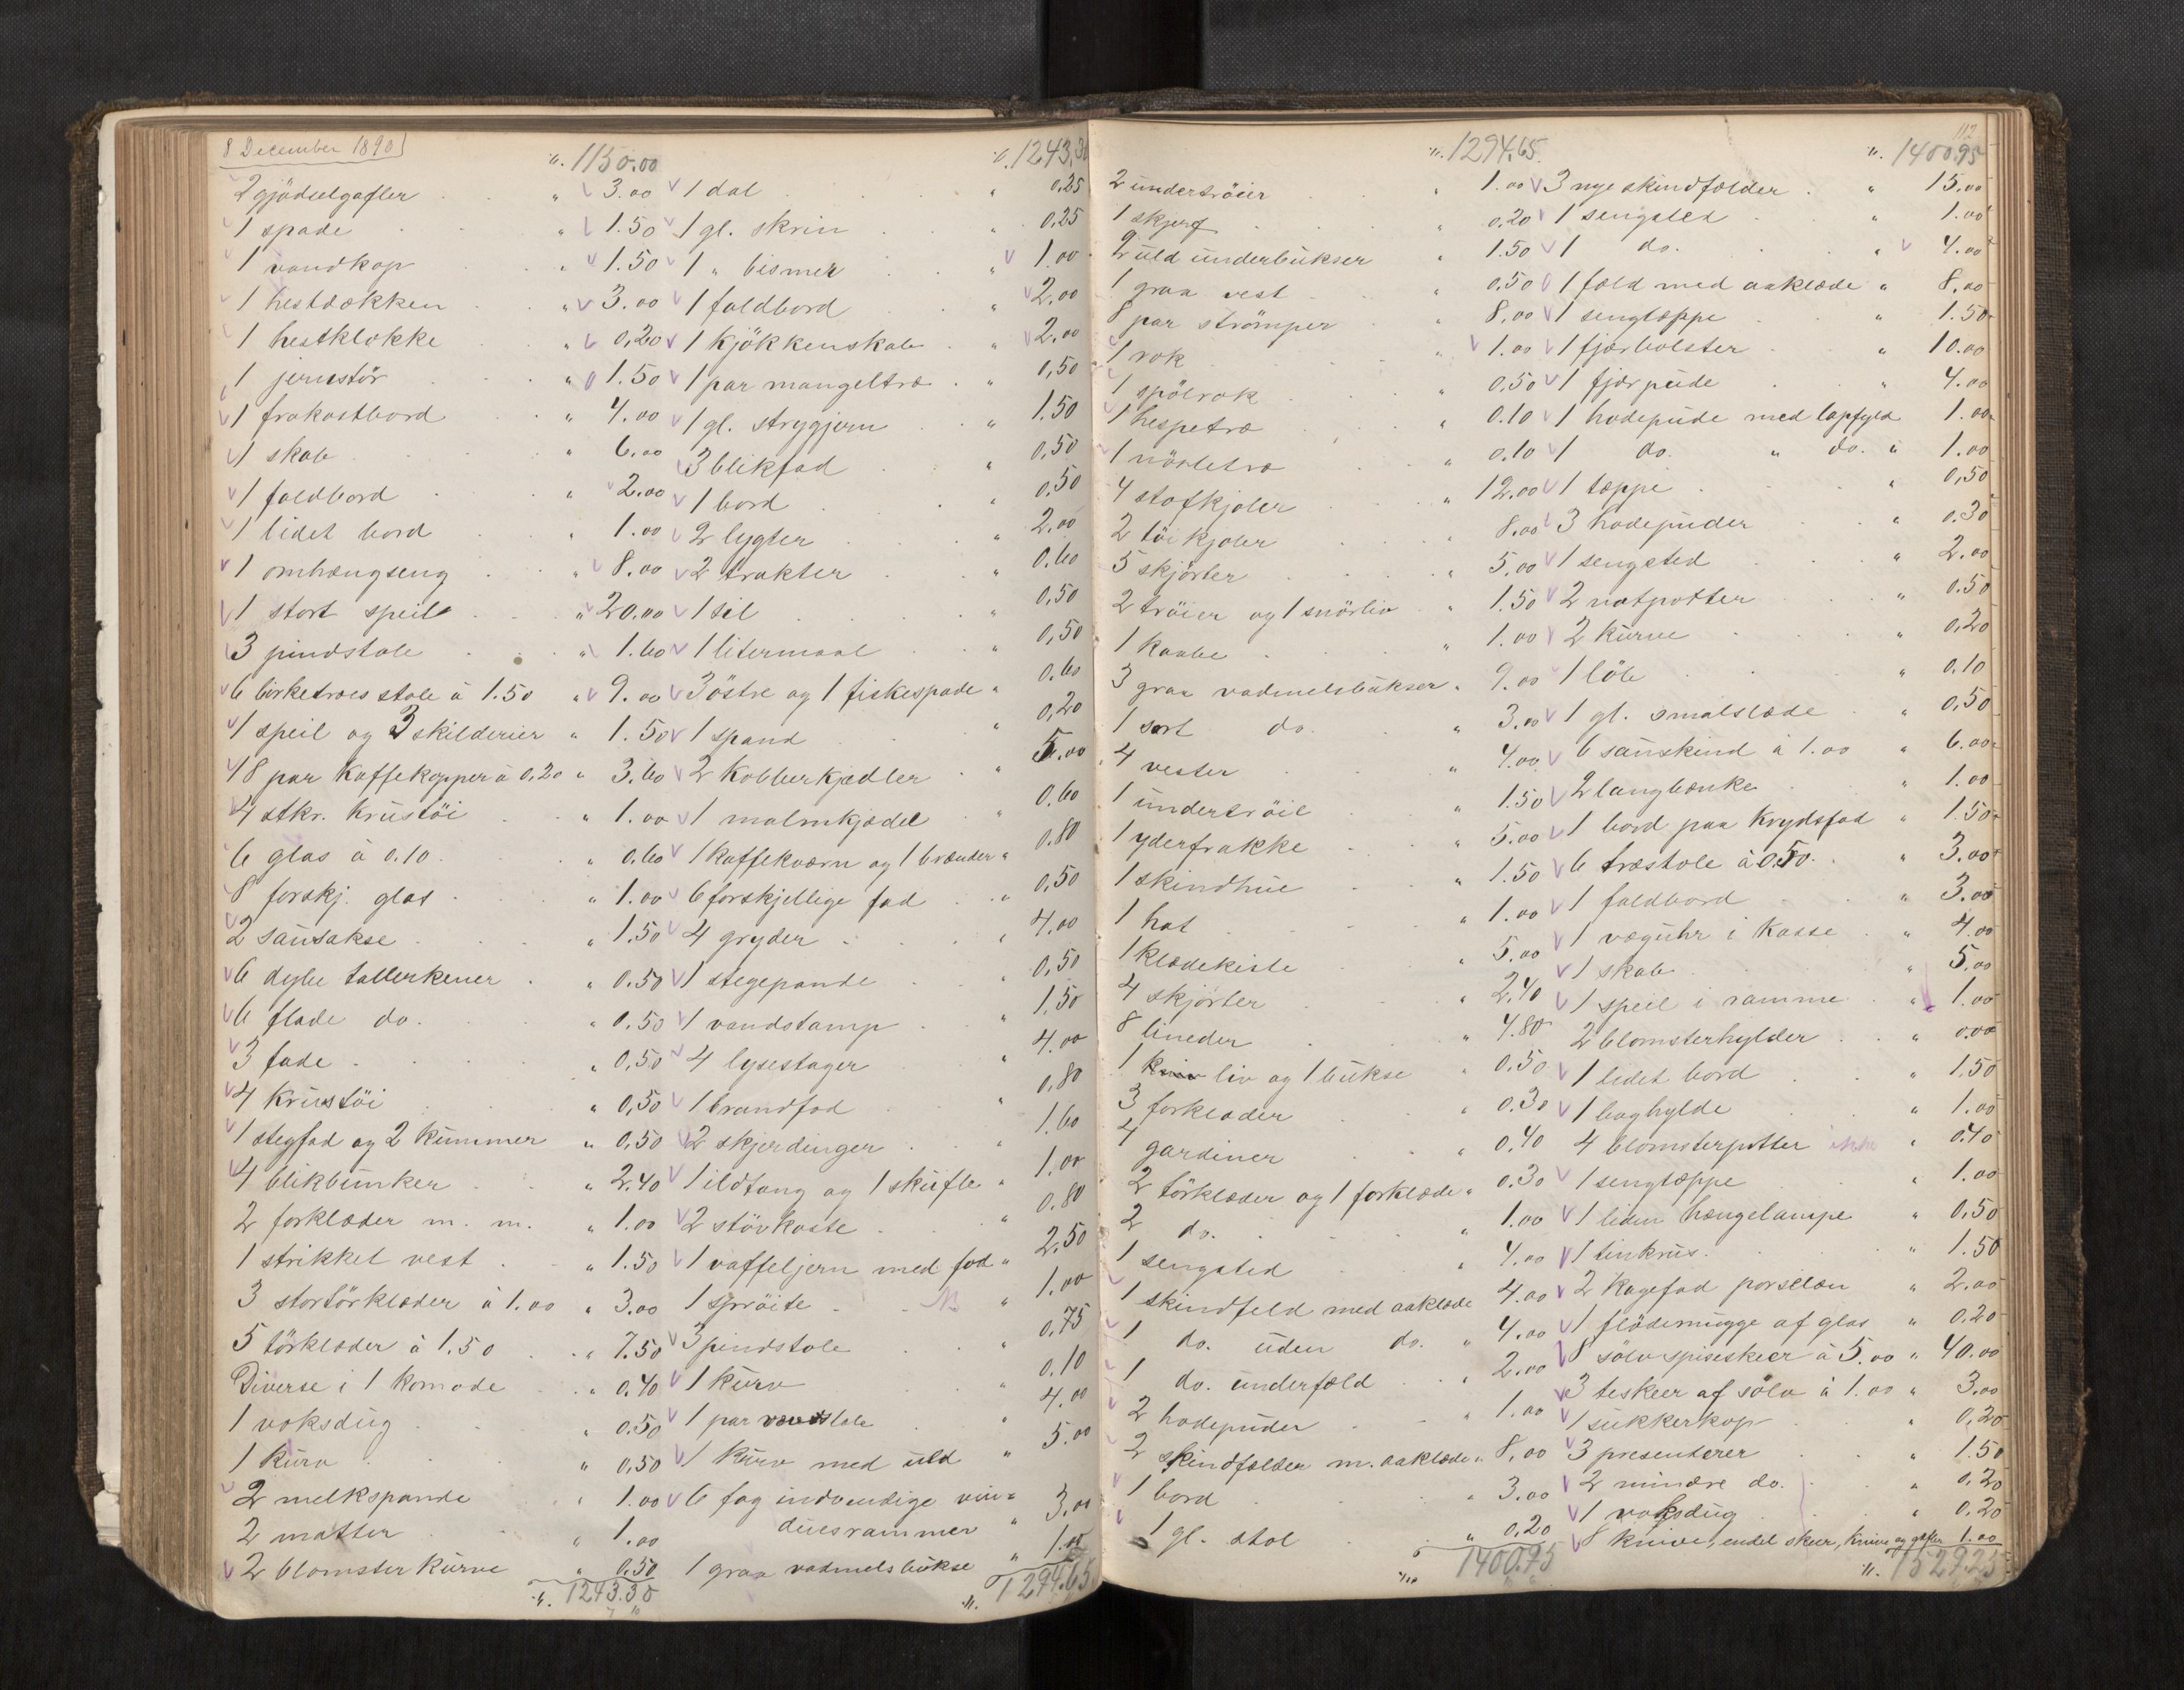 8 December 1890
". 1150.00
2 gjödselgafler " 3.00
1 spade " 1.50
1 vandkop " 1.50
1 hestdækken " 3.00
1 hestklokke " 0,20
1 jernstör " 1.50
1 frokostbord " 4.00
1 skab " 6.00
1 foldbord " 2.00
1 lidet bord " 1.00
1 omhængseng " 8.00
1 stort speil " 20.00
3 pindstole " 1.60
6 birketræes stole à 1.50 " 9.00
1 speil og 3 skilderier " 1.50
18 par Kaffekopper à 0,20 " 3.60
4 stkr. Krustöi " 1.00
6 glas à 0.10 " 0.60
8 forskj. glas " 1.00
2 sausakse " 1.50
6 dybe tallerkener " 0.50
6 flade do. " 0.50
3 fade " 0,50
4 Krustöi " 0,50
1 stegfad og 2 Kummer " 0,50
4 blikbunker " 2.40
2 forklæder m. m. " 1.00
1 strikket vest " 1.50
3 stortörklæder à 1.00 " 3.00
5 törklæder à 1.50 " 7.50
Diverse i 1 Komode " 0.40
1 voksdug " 0.50
1 Kurv " 0,50
2 melkspande " 1.00
2 matter " 1.00
2 blomsterkurve " 0.50
". 1243.30
1243,30
1 dal " 0.25
1 gl. skrin " 0,25
1 " bismer " 1.00
1 foldbord " 2.00
1 Kjökkenskab " 2.00
1 par mangeltræ " 0,50
1 gl. strygjern " 1.50
3 blikfad " 0,50
1 bord " 0.50
2 lygter " 2.00
2 trakter " 0.60
1 sil " 0,50
1 litermaal " 0,50
3 östre og 1 fiskespade " 0.60
1 spand " 0,20
2 Kobberkjedler " 5.00
1 malmkjedel " 0.60
1 kaffekværn og 1 brænder " 0.80
6 forskjellige fad " 0,50
4 gryder " 4.00
1 stegepande " 0,50
1 vandstamp " 1,50
4 lysestager " 4.00
1 brandfad " 0,80
2 skjerdinger " 1.60
1 ildtang og 1 skufle " 1.00
2 stövkoste " 0.80
1 vaffeljern med fod " 2.50
1 spröite " 1.00
3 pindstole " 0.75
1 Kurv " 0.10
1 par vævstole " 4.00
1 Kurv med uld " 5.00
6 fag indvendige vin-
duesrammer " 3,00
1 graa vadmelsbukse " 1.00
". 1294.65
112
". 1294.65
2 undertröier " 1.00
1 skjerf " 0,20
2 uld underbukser " 1.50
1 graa vest " 0,50
8 par strömper " 8,00
1 rok " 1.00
1 spölrok " 0,50
1 hespetræ " 0.10
1 nöstetræ " 0,10
4 stofkjoler " 12.00
2 töikjoler " 8,00
5 skjörter " 5,00
2 tröier og 1 snörliv " 1.50
1 Kaabe " 1.00
3 graa vadmelsbukser " 9.00
1 sort do. " 3.00
4 vester " 4.00
1 undertröie " 1.50
1 yderfrakke " 5.00
1 skindhue " 1.50
1 hat " 1.00
1 klædekiste " 5.00
4 skjörter " 2,40
8 lineder " 4.80
1 liv og 1 bukse " 0.50
3 forklæder " 0.30
4 gardiner " 0,40
2 törklæder og 1 forklæde " 0.30
2 do. " 1.00
1 sengsted " 4.00
1 skindfeld med aaklæde 4.00
1 do. uden do. " 4.00
1 do. underfæld " 2.00
2 hodepuder " 1.00
2 skindfælder m. aaklæde " 8,00
1 bord " 3.00
1 gl. stol " 0,20
1400.95
". 1400.95
3 nye skindfælder " 15.00
1 sengsted " 1.00
1 do. " 4.00
1 fæld med aaklæde " 8,00
1 sengtæppe " 1.50
1 fjærbolster " 10.00
1 fjærpude " 4.00
1 hodepude med lapfyld 1.00
1 do. " do. " 1.00
1 tæppe " 0,50
3 hodepuder " 0.30
1 sengsted " 2.00
2 natpotter " 0.50
2 Kurve " 0,20
1 löb " 0.10
1 gl. smalslæde " 0,50
6 sauskind à 1.00 " 6.00
2 langbænke " 1.00
1 bord paa Krydsfod " 1.50
6 træstole à 0.50 " 3.00
1 foldbord " 3.00
1 væguhr i Kasse " 4.00
1 skab " 5,00
1 speil i ramme " 1.00
2 blomsterhylder " 0.00
1 lidet bord " 1.50
1 boghylde " 1.00
4 blomsterpotter ikke " 0.40
1 sengtæppe " 1.00
1 liden hængelampe " 0,50
1 tinkrus " 1.50
2 Kagefad porselæn " 2.00
1 flödemugge af glas " 0,20
8 sölvspiseskeer à 5.00 " 40.00
3 teskeer af sölv à 1.00 " 3.00
1 sukkerkop " 0,20
3 presenterer " 1.50
2 mindre do. " 0.20
1 voksdug " 0.20
8 Knive, endel skeer, Knive og gafler 1.00
". 1529.25